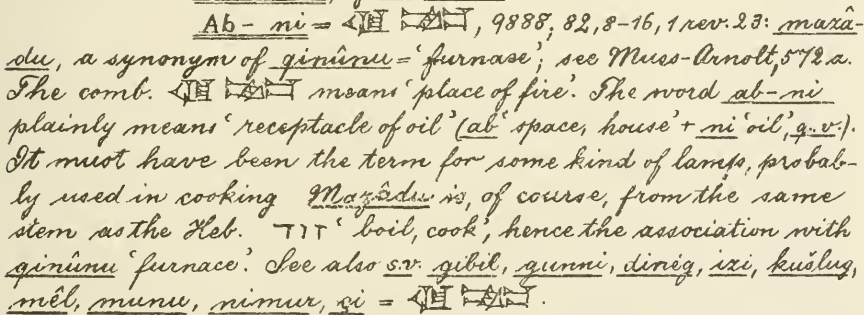 Ab-ni = 𒆠𒉈, 9888, 82, 8-16, 1 rev. 23: mazâ-
du, a synonym of qinûnu = 'furnase'; see Muss-Arnolt, 572 a.
The comb. means 'place of fire'. The word ab-ni
plainly means 'receptacle of oil' (ab 'space, house' + ni 'oil', q.v.).
It must have been the term for some kind of lamp, probab-
ly used in cooking Mazâdu is, of course, from the same
stem as the Heb. דוד 'boil, cook', hence the association with
qinûnu 'furnace'. See also s.v. gibil, gunni, dinég, izi, kušlug,
mêl, munu, nimur, çi =